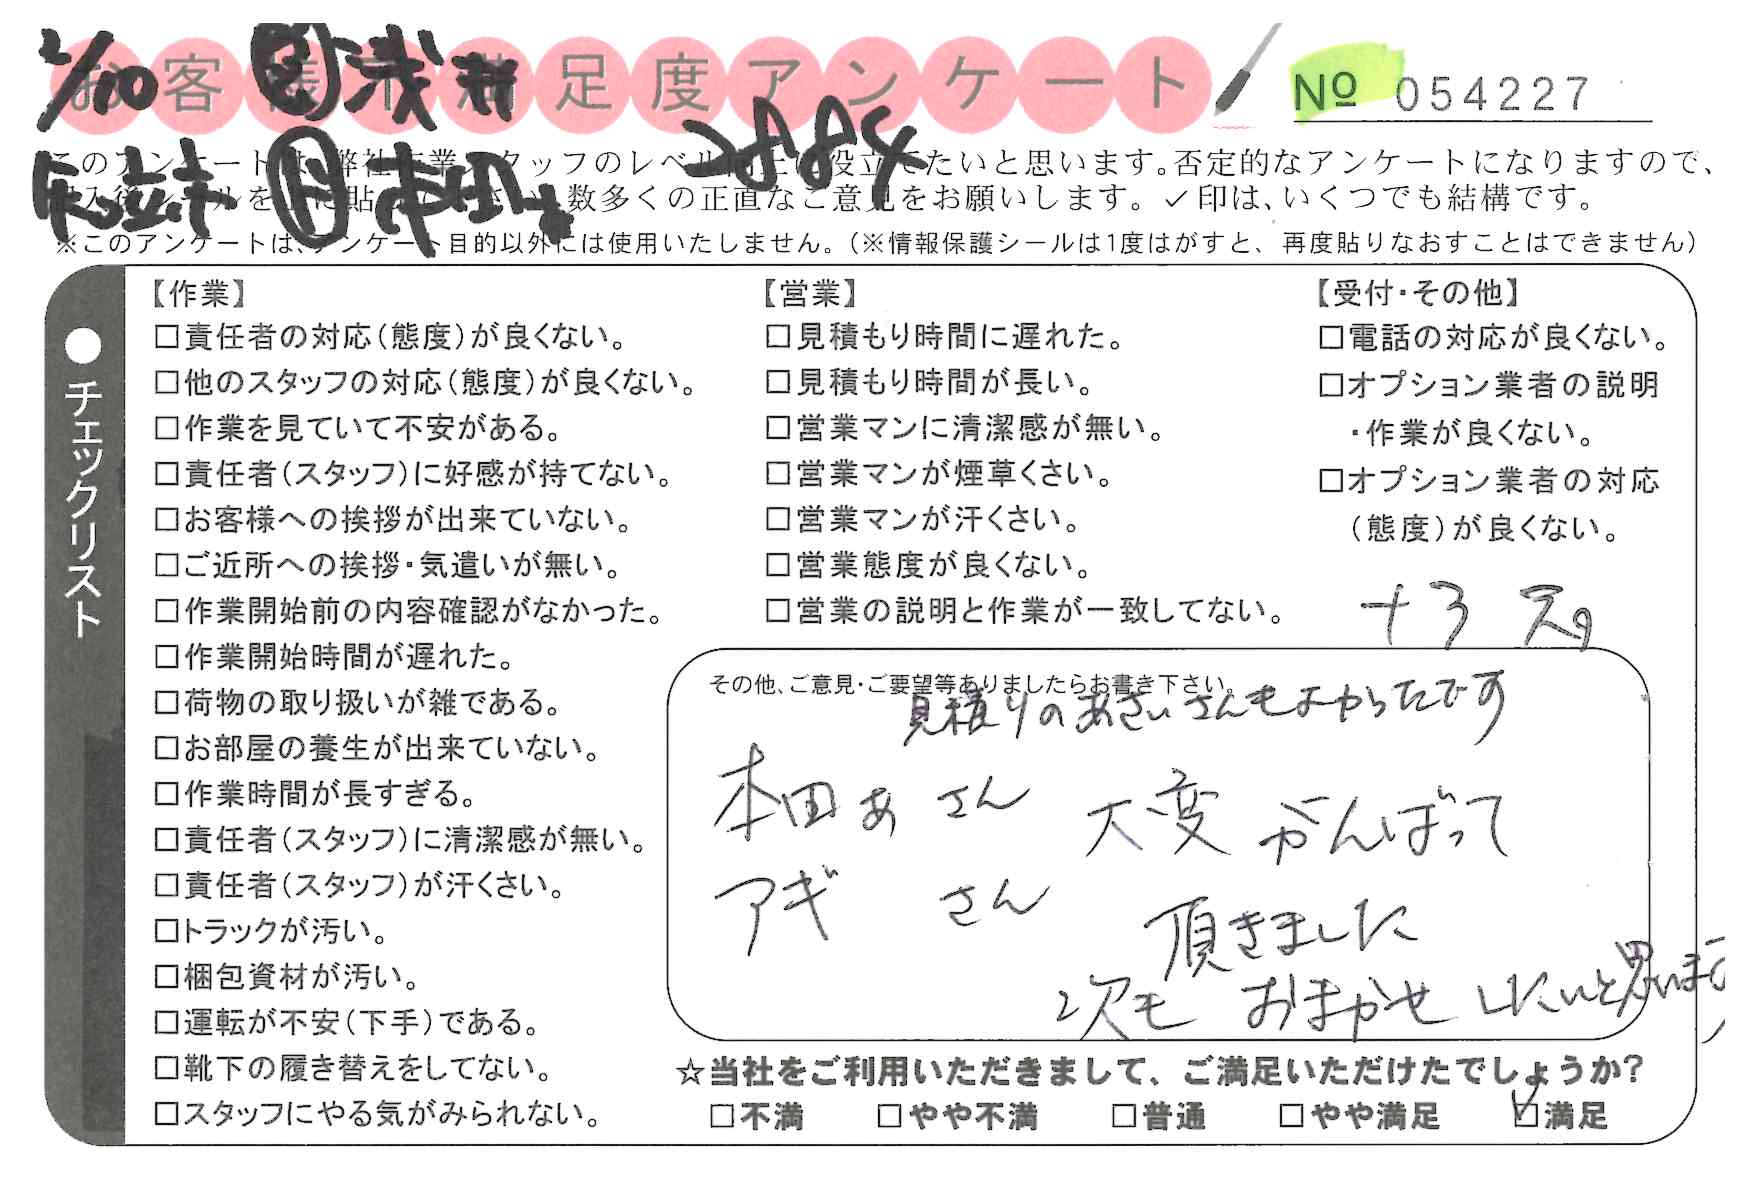 2/10 浅井
お客様不満足度アンケート
No 054227
2884
このアンケートは、弊社作業スタッフのレベル向上に役立てたいと思います。否定的なアンケートになりますので、
記入後シールを上に貼ってください。数多くの正直なご意見をお願いします。✓印は、いくつでも結構です。
足立 本田
※このアンケートは、アンケート目的以外には使用いたしません。（※情報保護シールは1度はがすと、再度貼りなおすことはできません）
●チェックリスト
【作業】
□責任者の対応（態度）が良くない。
□他のスタッフの対応（態度）が良くない。
□作業を見ていて不安がある。
□責任者（スタッフ）に好感が持てない。
□お客様への挨拶が出来ていない。
□ご近所への挨拶・気遣いが無い。
□作業開始前の内容確認がなかった。
□作業開始時間が遅れた。
□荷物の取り扱いが雑である。
□お部屋の養生が出来ていない。
□作業時間が長すぎる。
□責任者（スタッフ）に清潔感が無い。
□責任者（スタッフ）が汗くさい。
□トラックが汚い。
□梱包資材が汚い。
□運転が不安（下手）である。
□靴下の履き替えをしてない。
□スタッフにやる気がみられない。
【営業】
□見積もり時間に遅れた。
□見積もり時間が長い。
□営業マンに清潔感が無い。
□営業マンが煙草くさい。
□営業マンが汗くさい。
□営業態度が良くない。
□営業の説明と作業が一致してない。
【受付・その他】
□電話の対応が良くない。
□オプション業者の説明
・作業が良くない。
□オプション業者の対応
（態度）が良くない。
その他、ご意見・ご要望等ありましたらお書き下さい。
見積りのあさいさんもよかったです
本田あ さん 大変 がんばって
アギ さん 頂きました
次も おまかせ したいと思います
☆当社をご利用いただきまして、ご満足いただけたでしょうか？
□不満 □やや不満 □普通 □やや満足 ☑満足